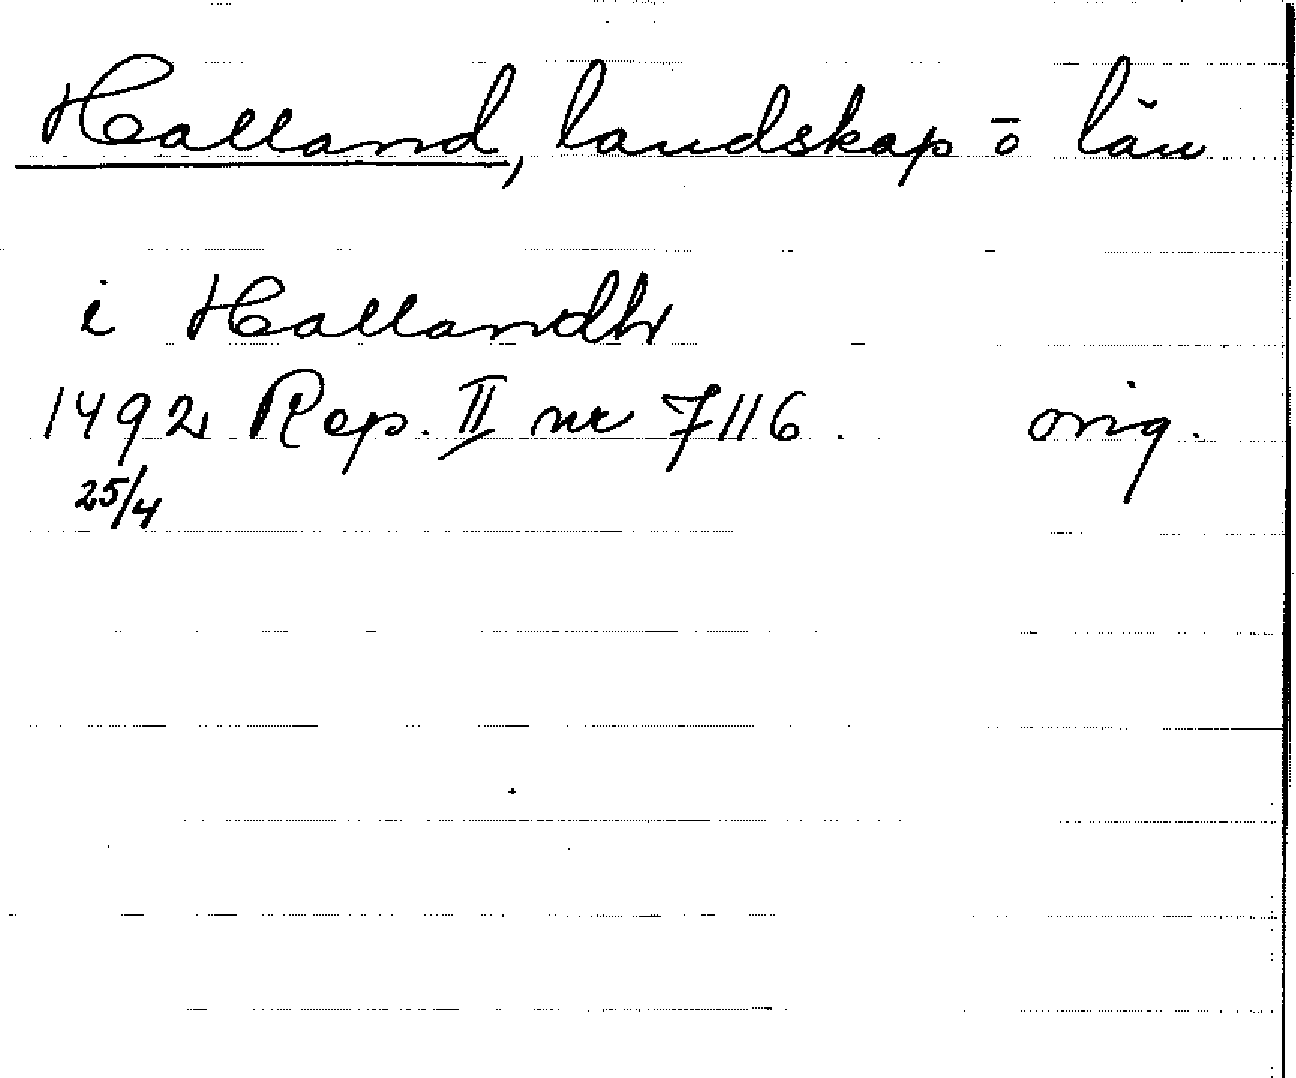 Halland, landskap ō län
i Hallandh
1492 Rep. II nr 7116. orig.
25/4